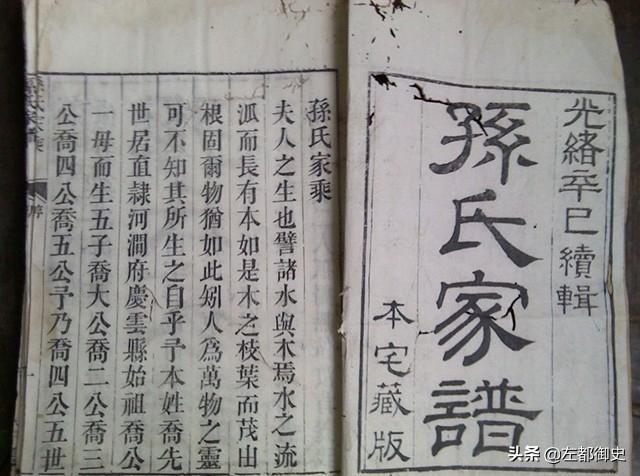 光緒辛巳續輯
孫氏家譜
本宅藏版
孫氏家乘
夫人之生也譬諸水與木焉水之流
派而長有本如是木之枝葉而茂出
根固爾物猶如此矧人為萬物之靈
可不知其所生之自乎予本姓喬先
世居直隸河澗府慶雲縣始祖喬公
一母而生五子喬大公喬二公喬三
公喬四公喬五公予乃喬四公五世
頭条 @左都御史